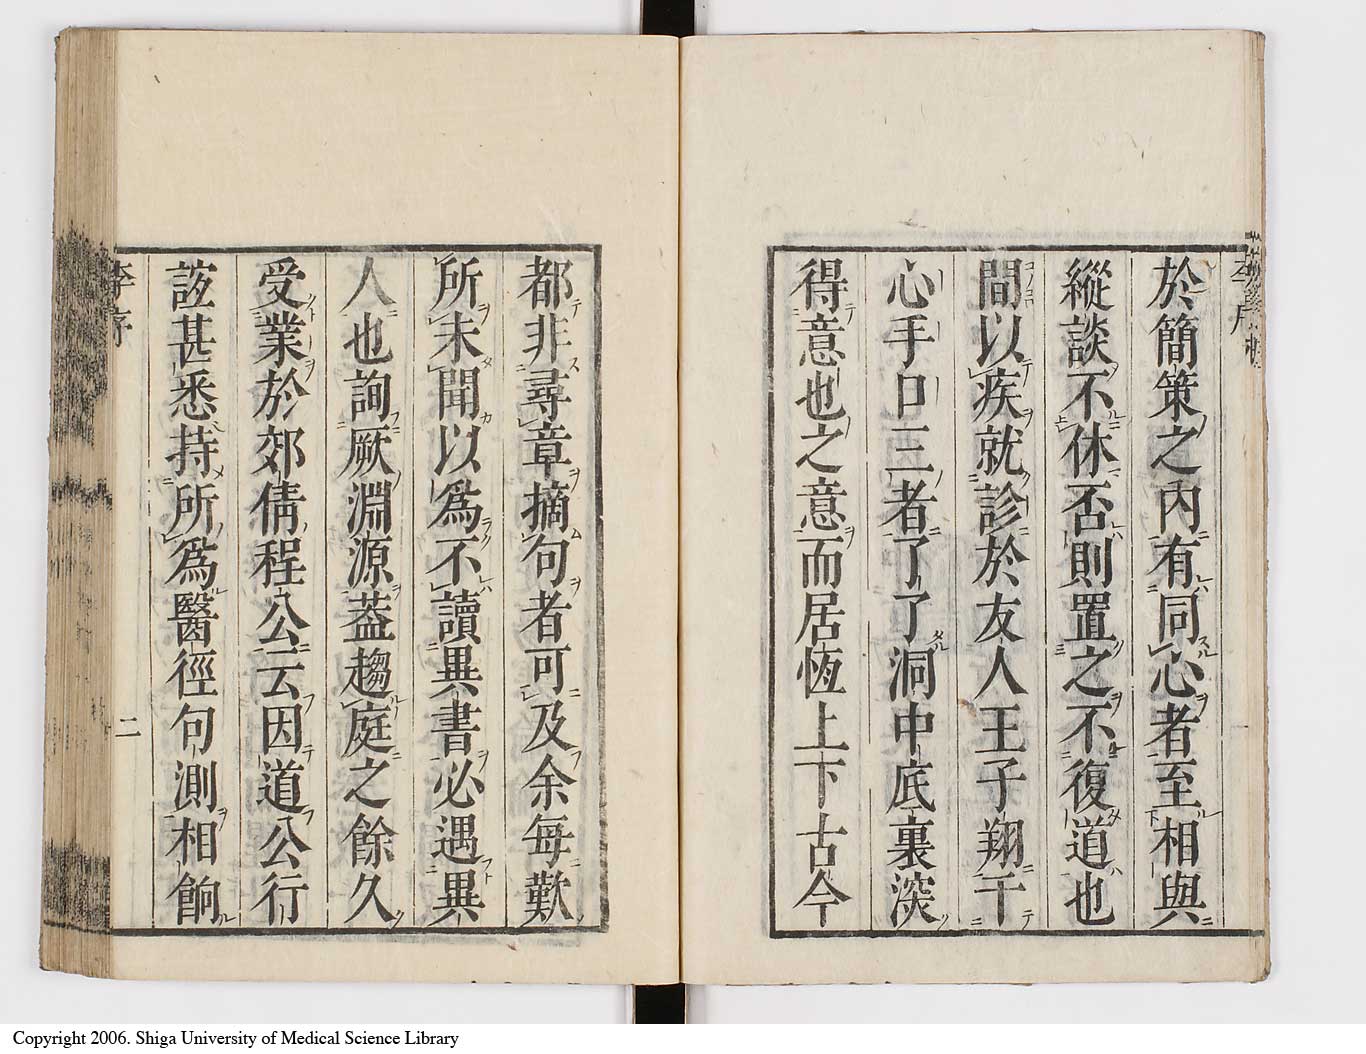 於簡策之內有同心者至相與
縱談不休否則置之不復道也
間以疾就診於友人王子翔千
心手口三者了了洞中底裏深
得意也之意而居恆上下古今
都非尋章摘句者可及余每歎
所未聞以爲不讀異書必遇異
人也詢厥淵源蓋趨庭之餘久
受業於郊倩程公云因道公行
該甚悉持所爲醫徑句測相餉
李序
二
Copyright 2006. Shiga University of Medical Science Library